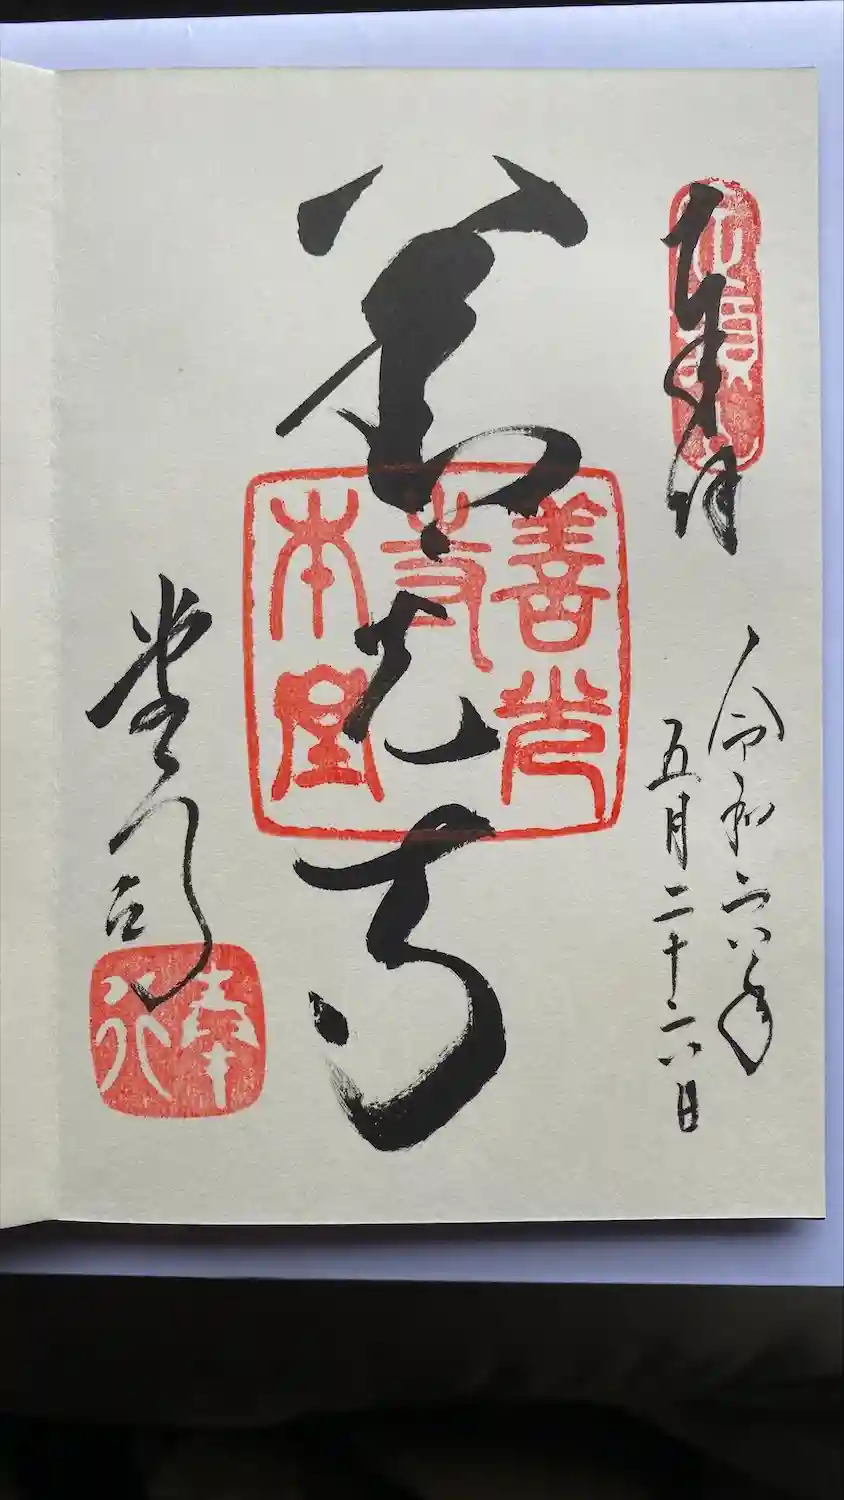 奉拝
令和六年
五月二十六日
善光寺
善光寺本堂
堂司
奉行